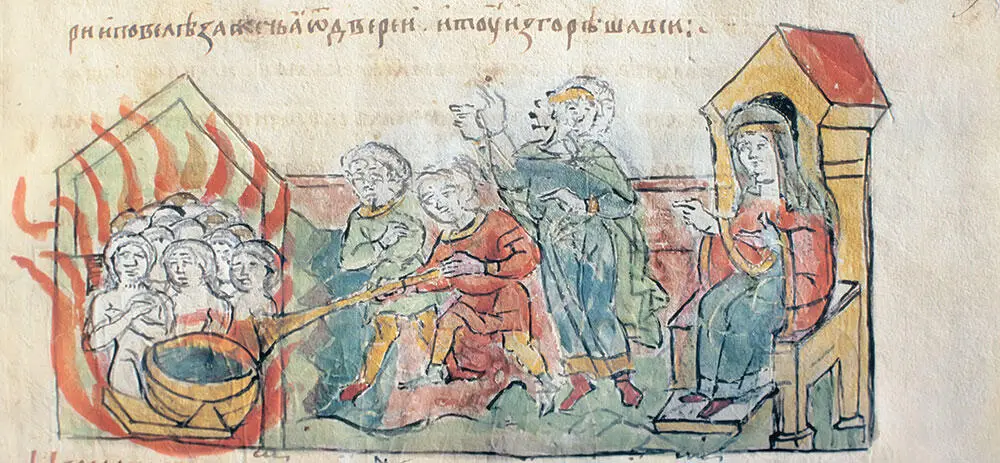 ри и повелѣ зажечьѧ ѿ двереи · и тоу изгорѣша вси:·